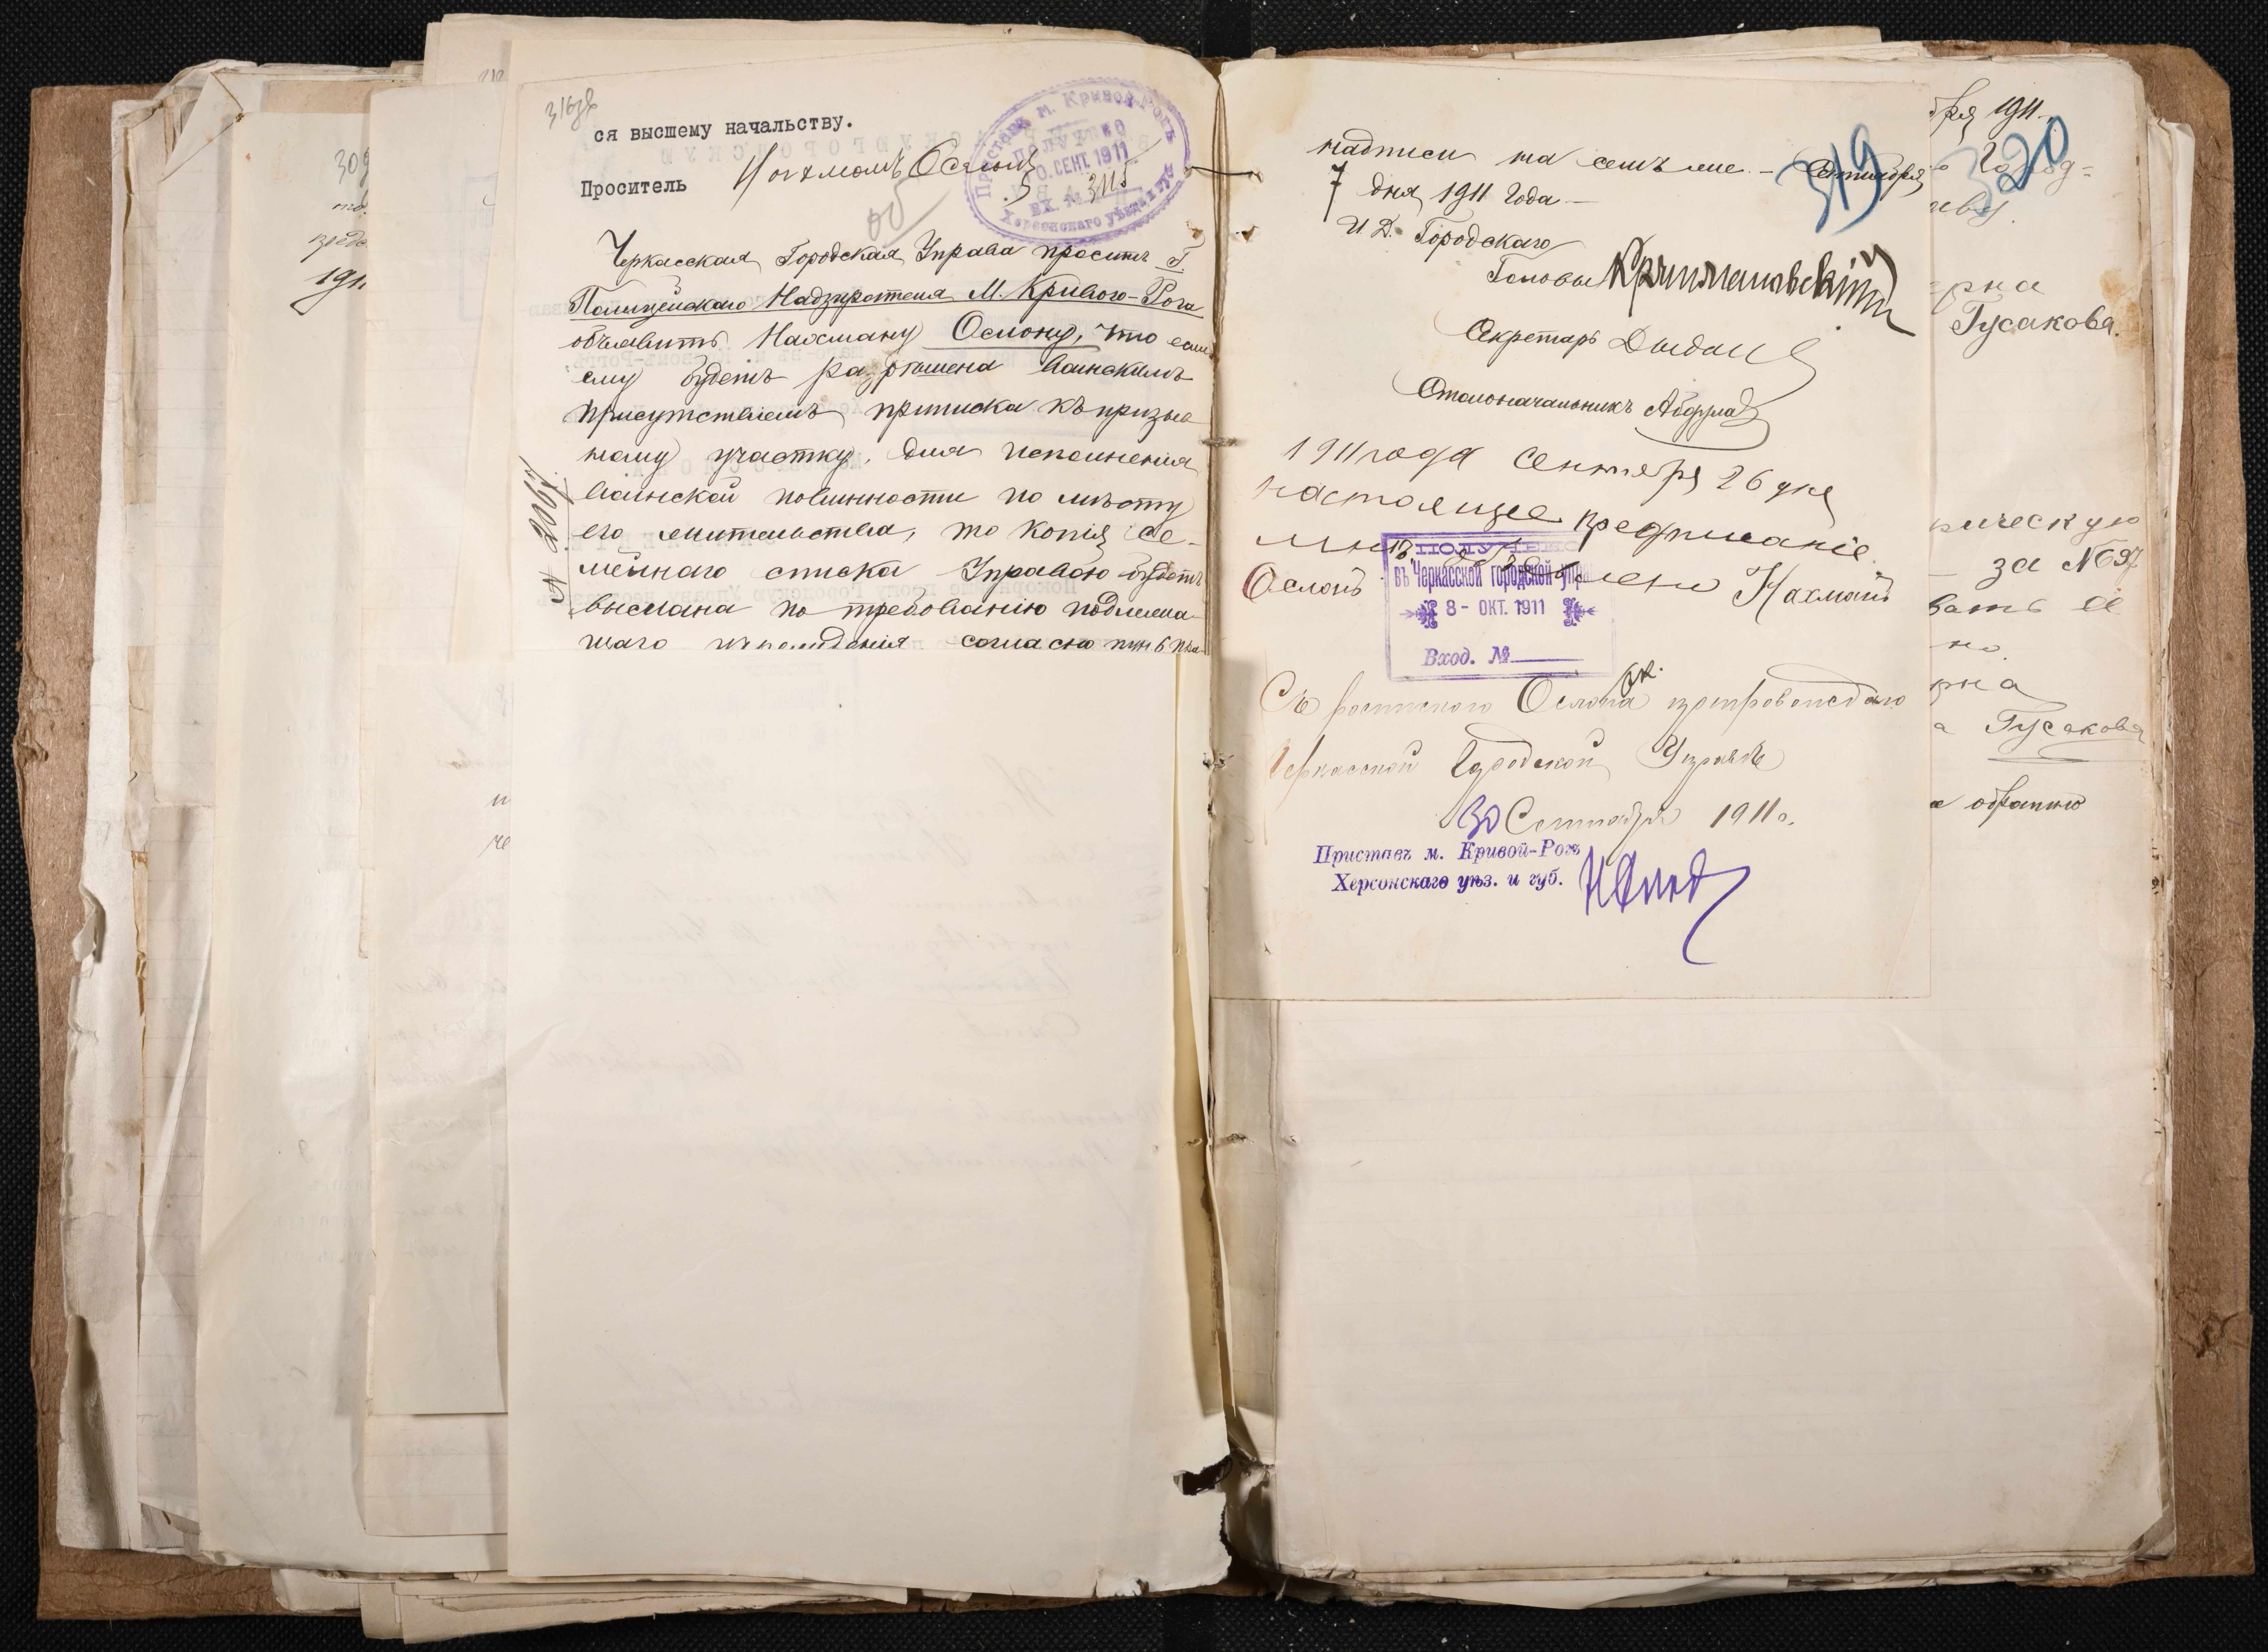 ся высшему начальству.
Проситель Нохманъ Ослонъ
Приставъ м. Кривой-Рогъ
ПОЛУЧЕНО
СЕНТ. 1911
ВХ. № 3115
Херсонскаго уѣзда и губ.
Черкасская Городская Управа проситъ Г.
Полицейскаго Надзирателя М. Кривого-Рога
объявить Нахману Ослону, что если
ему будетъ разрѣшена Воинскимъ
присутствіемъ приписка къ призыв
ному участку, для исполненія
воинской повинности по мѣсту
его жительства, то копія се-
мейнаго списка Управою будетъ
выслана по требованію подлежа-
щаго согласно
№ 2067
надписи на семъ же. - Сентября
7 дня 1911 года -
И. Д. Городскаго
Головы
Секретарь
Столоначальникъ
319
1911 года Сентября 26 дня
настоящее предписаніе
мнѣ объявлено Нахманъ
Ослонъ
ПОЛУЧЕНО
въ Черкасской городской упра
8 - ОКТ. 1911
Вход. №
Съ роспискою Ослона препровождаю
Черкасской Городской Управѣ
30 Сентября 1911 г.
Приставъ м. Кривой-Рогъ
Херсонскаго уѣз. и губ.
бря 1911
320
рна
Гусакова.
ическую
за № 697
вать её
но.
рна
а Гусакова
е обратно
309
1911